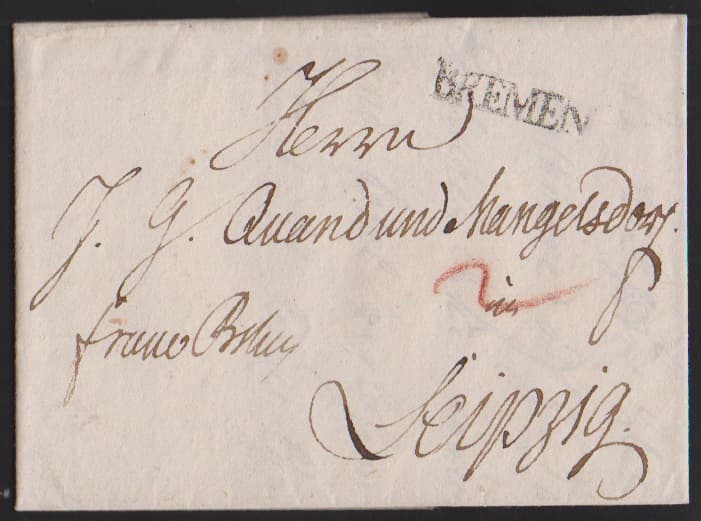 BREMEN
Herrn
J. G. Quand und Mangelsdorf.
in
franco
Leipzig.